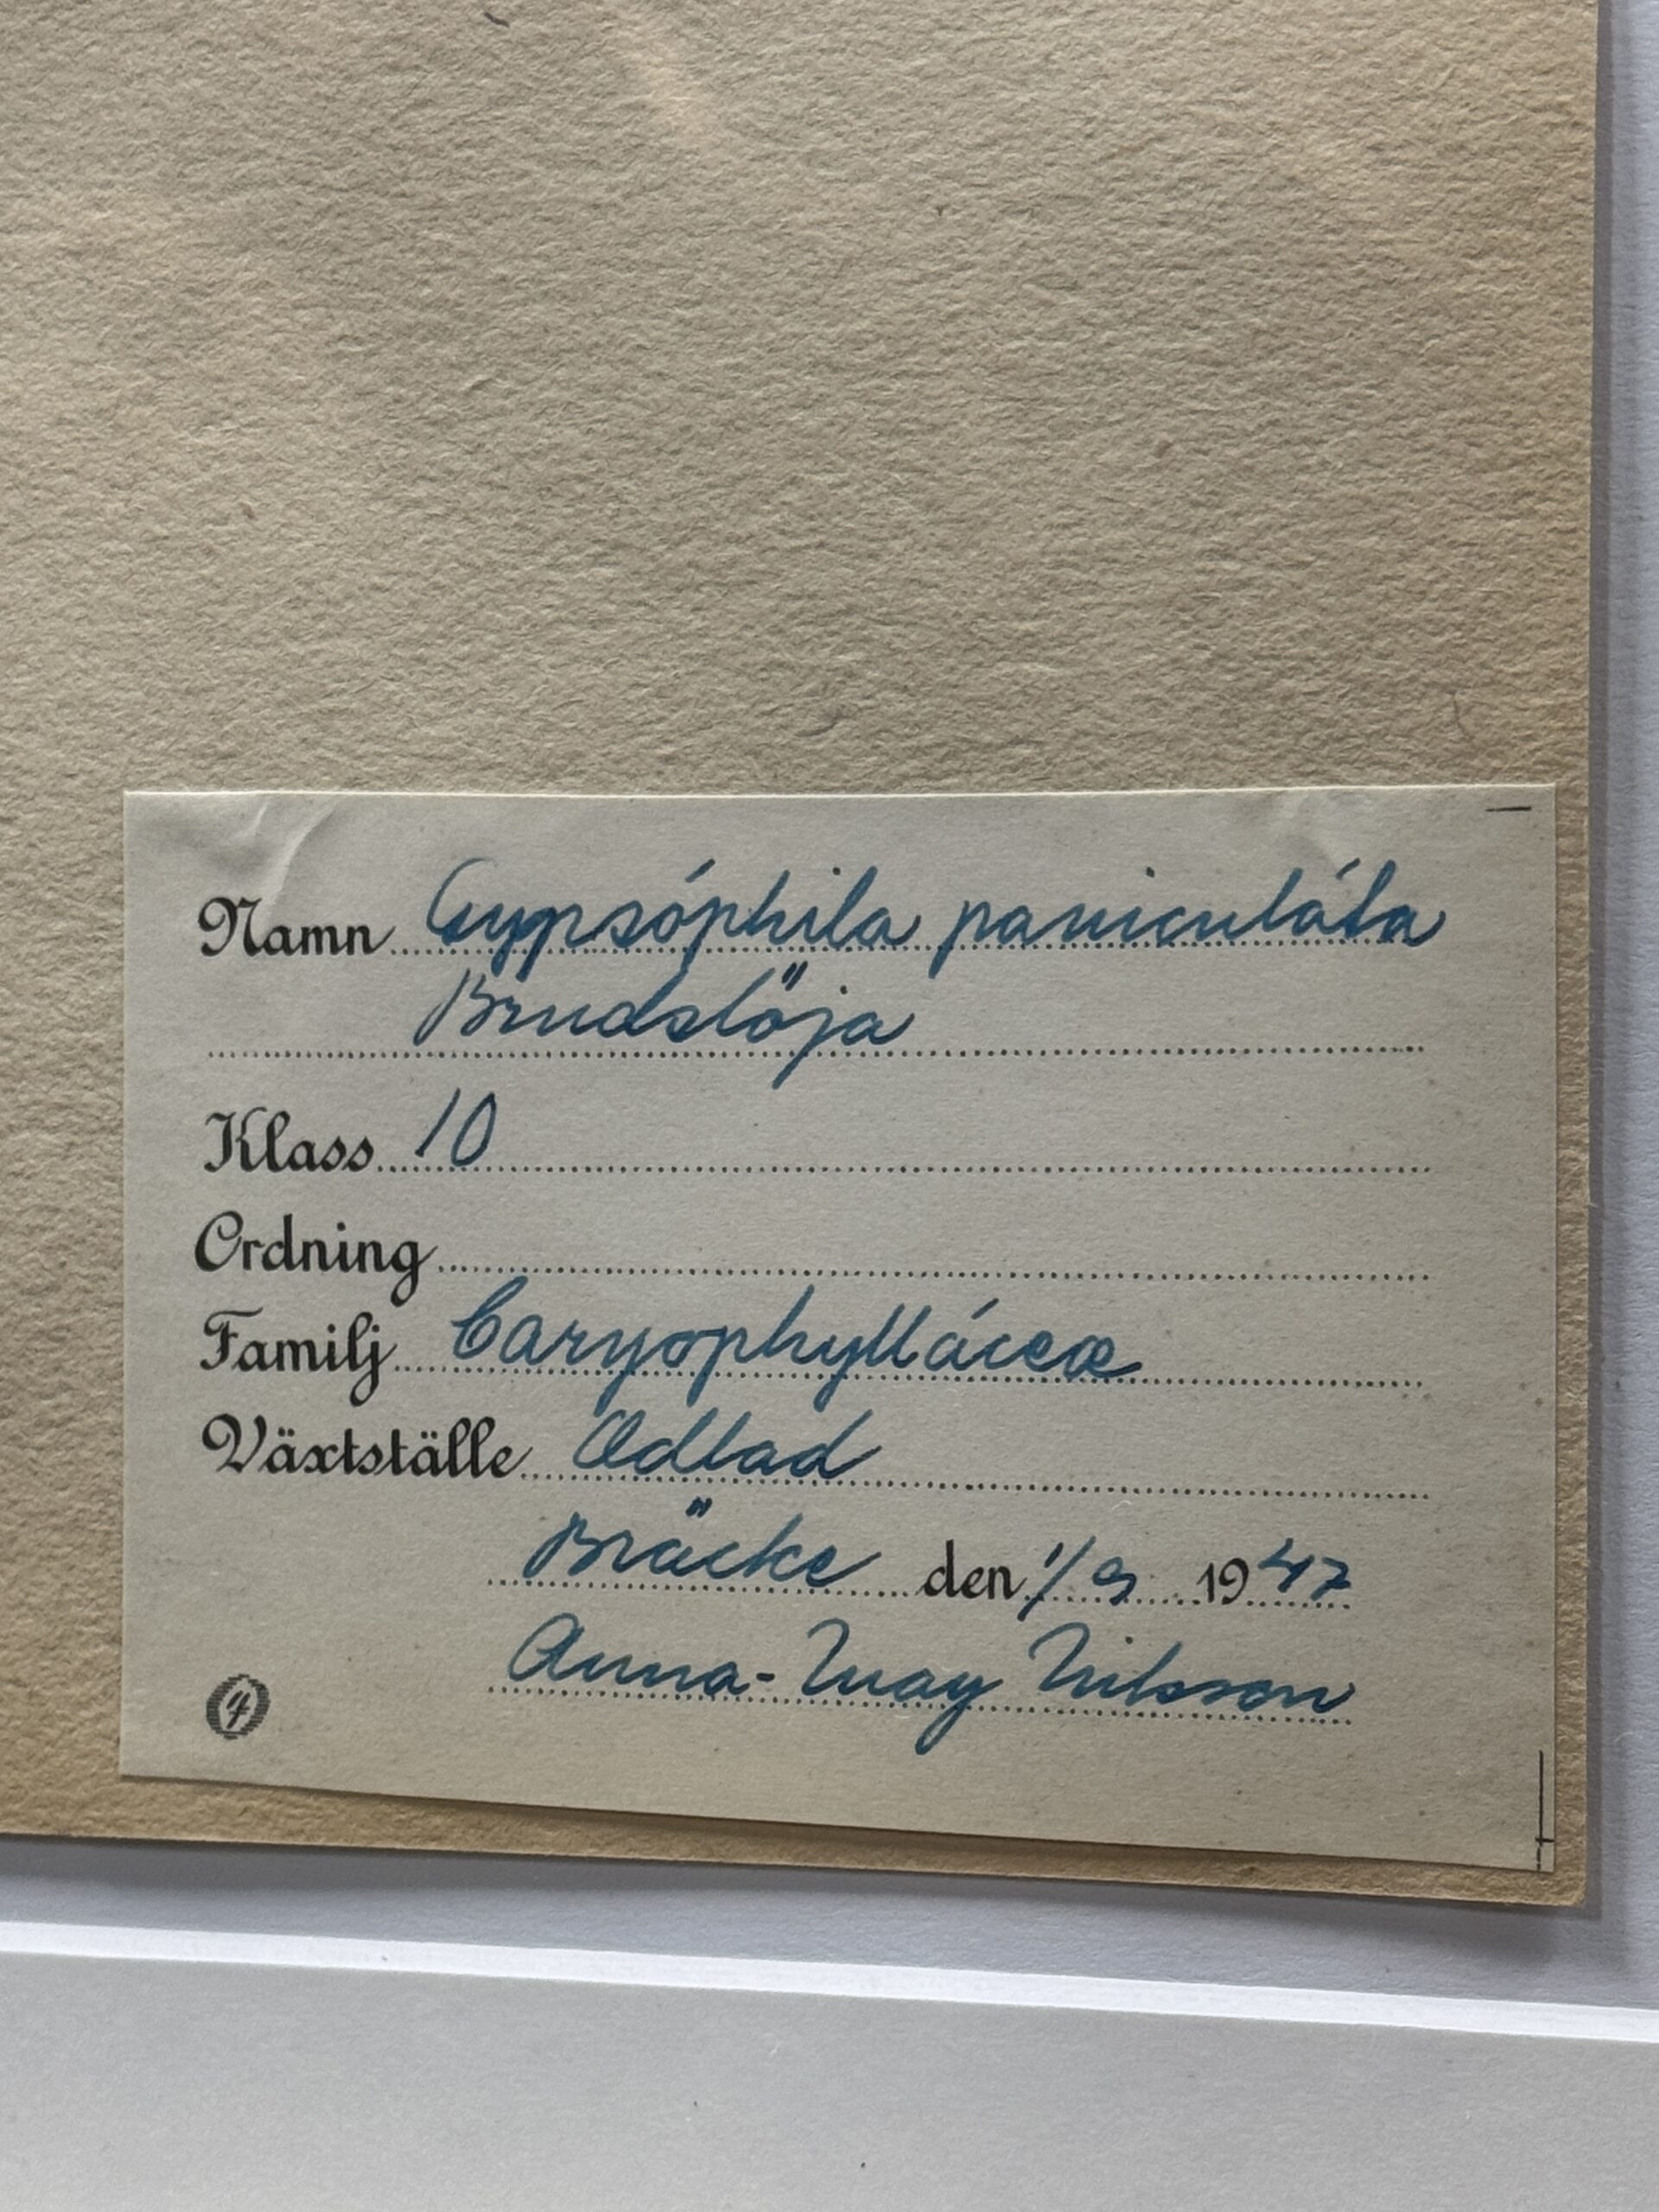 Namn Gypsóphila paniculáta
Brudslöja
Klass 10
Ordning
Familj Caryophylláceæ
Växtställe Odlad
Bräcke den 1/9 1947
Anna-May Nilsson
4